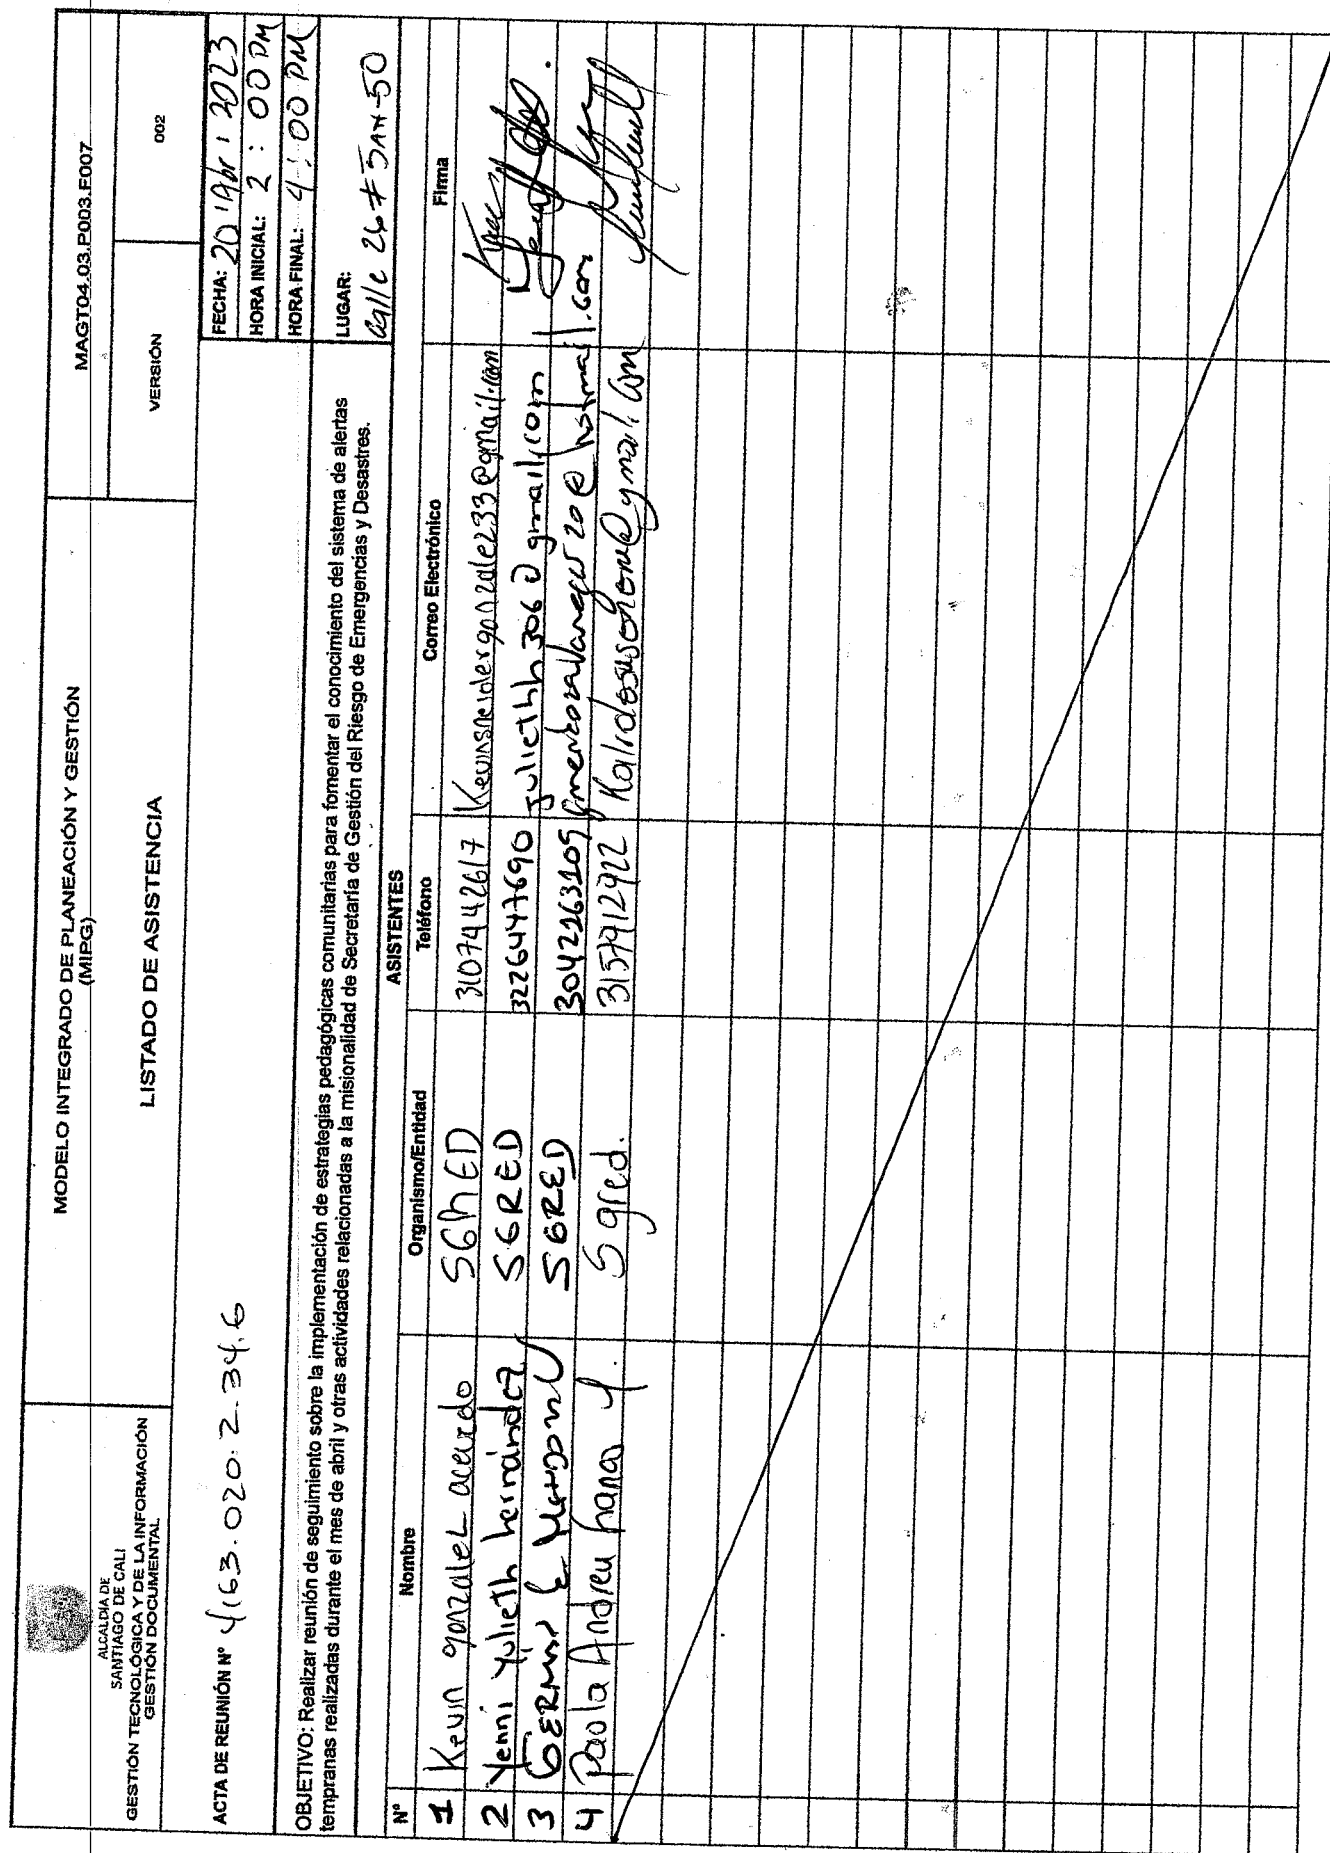 ALCALDÍA DE
SANTIAGO DE CALI
GESTIÓN TECNOLÓGICA Y DE LA INFORMACIÓN
GESTIÓN DOCUMENTAL
MODELO INTEGRADO DE PLANEACIÓN Y GESTIÓN
(MIPG)
LISTADO DE ASISTENCIA
MAGT04.03.P003.F007
VERSIÓN 002
ACTA DE REUNIÓN Nº 4163.020.2.34.6
FECHA: 20 / Abr / 2023
HORA INICIAL: 2 : 00 PM
HORA FINAL: 4 : 00 PM
OBJETIVO: Realizar reunión de seguimiento sobre la implementación de estrategias pedagógicas comunitarias para fomentar el conocimiento del sistema de alertas
tempranas realizadas durante el mes de abril y otras actividades relacionadas a la misionalidad de Secretaría de Gestión del Riesgo de Emergencias y Desastres.
LUGAR:
calle 26 # 5AN-50
ASISTENTES
Nº Nombre Organismo/Entidad Teléfono Correo Electrónico Firma
1 Kevin gonzalez 3107442617
2 Yenni Yulieth hernández SGRED 3226447690 Juliethh306@gmail.com
3 SGRED 3042163109
4 Paola Andrea Sgred. 3157912922